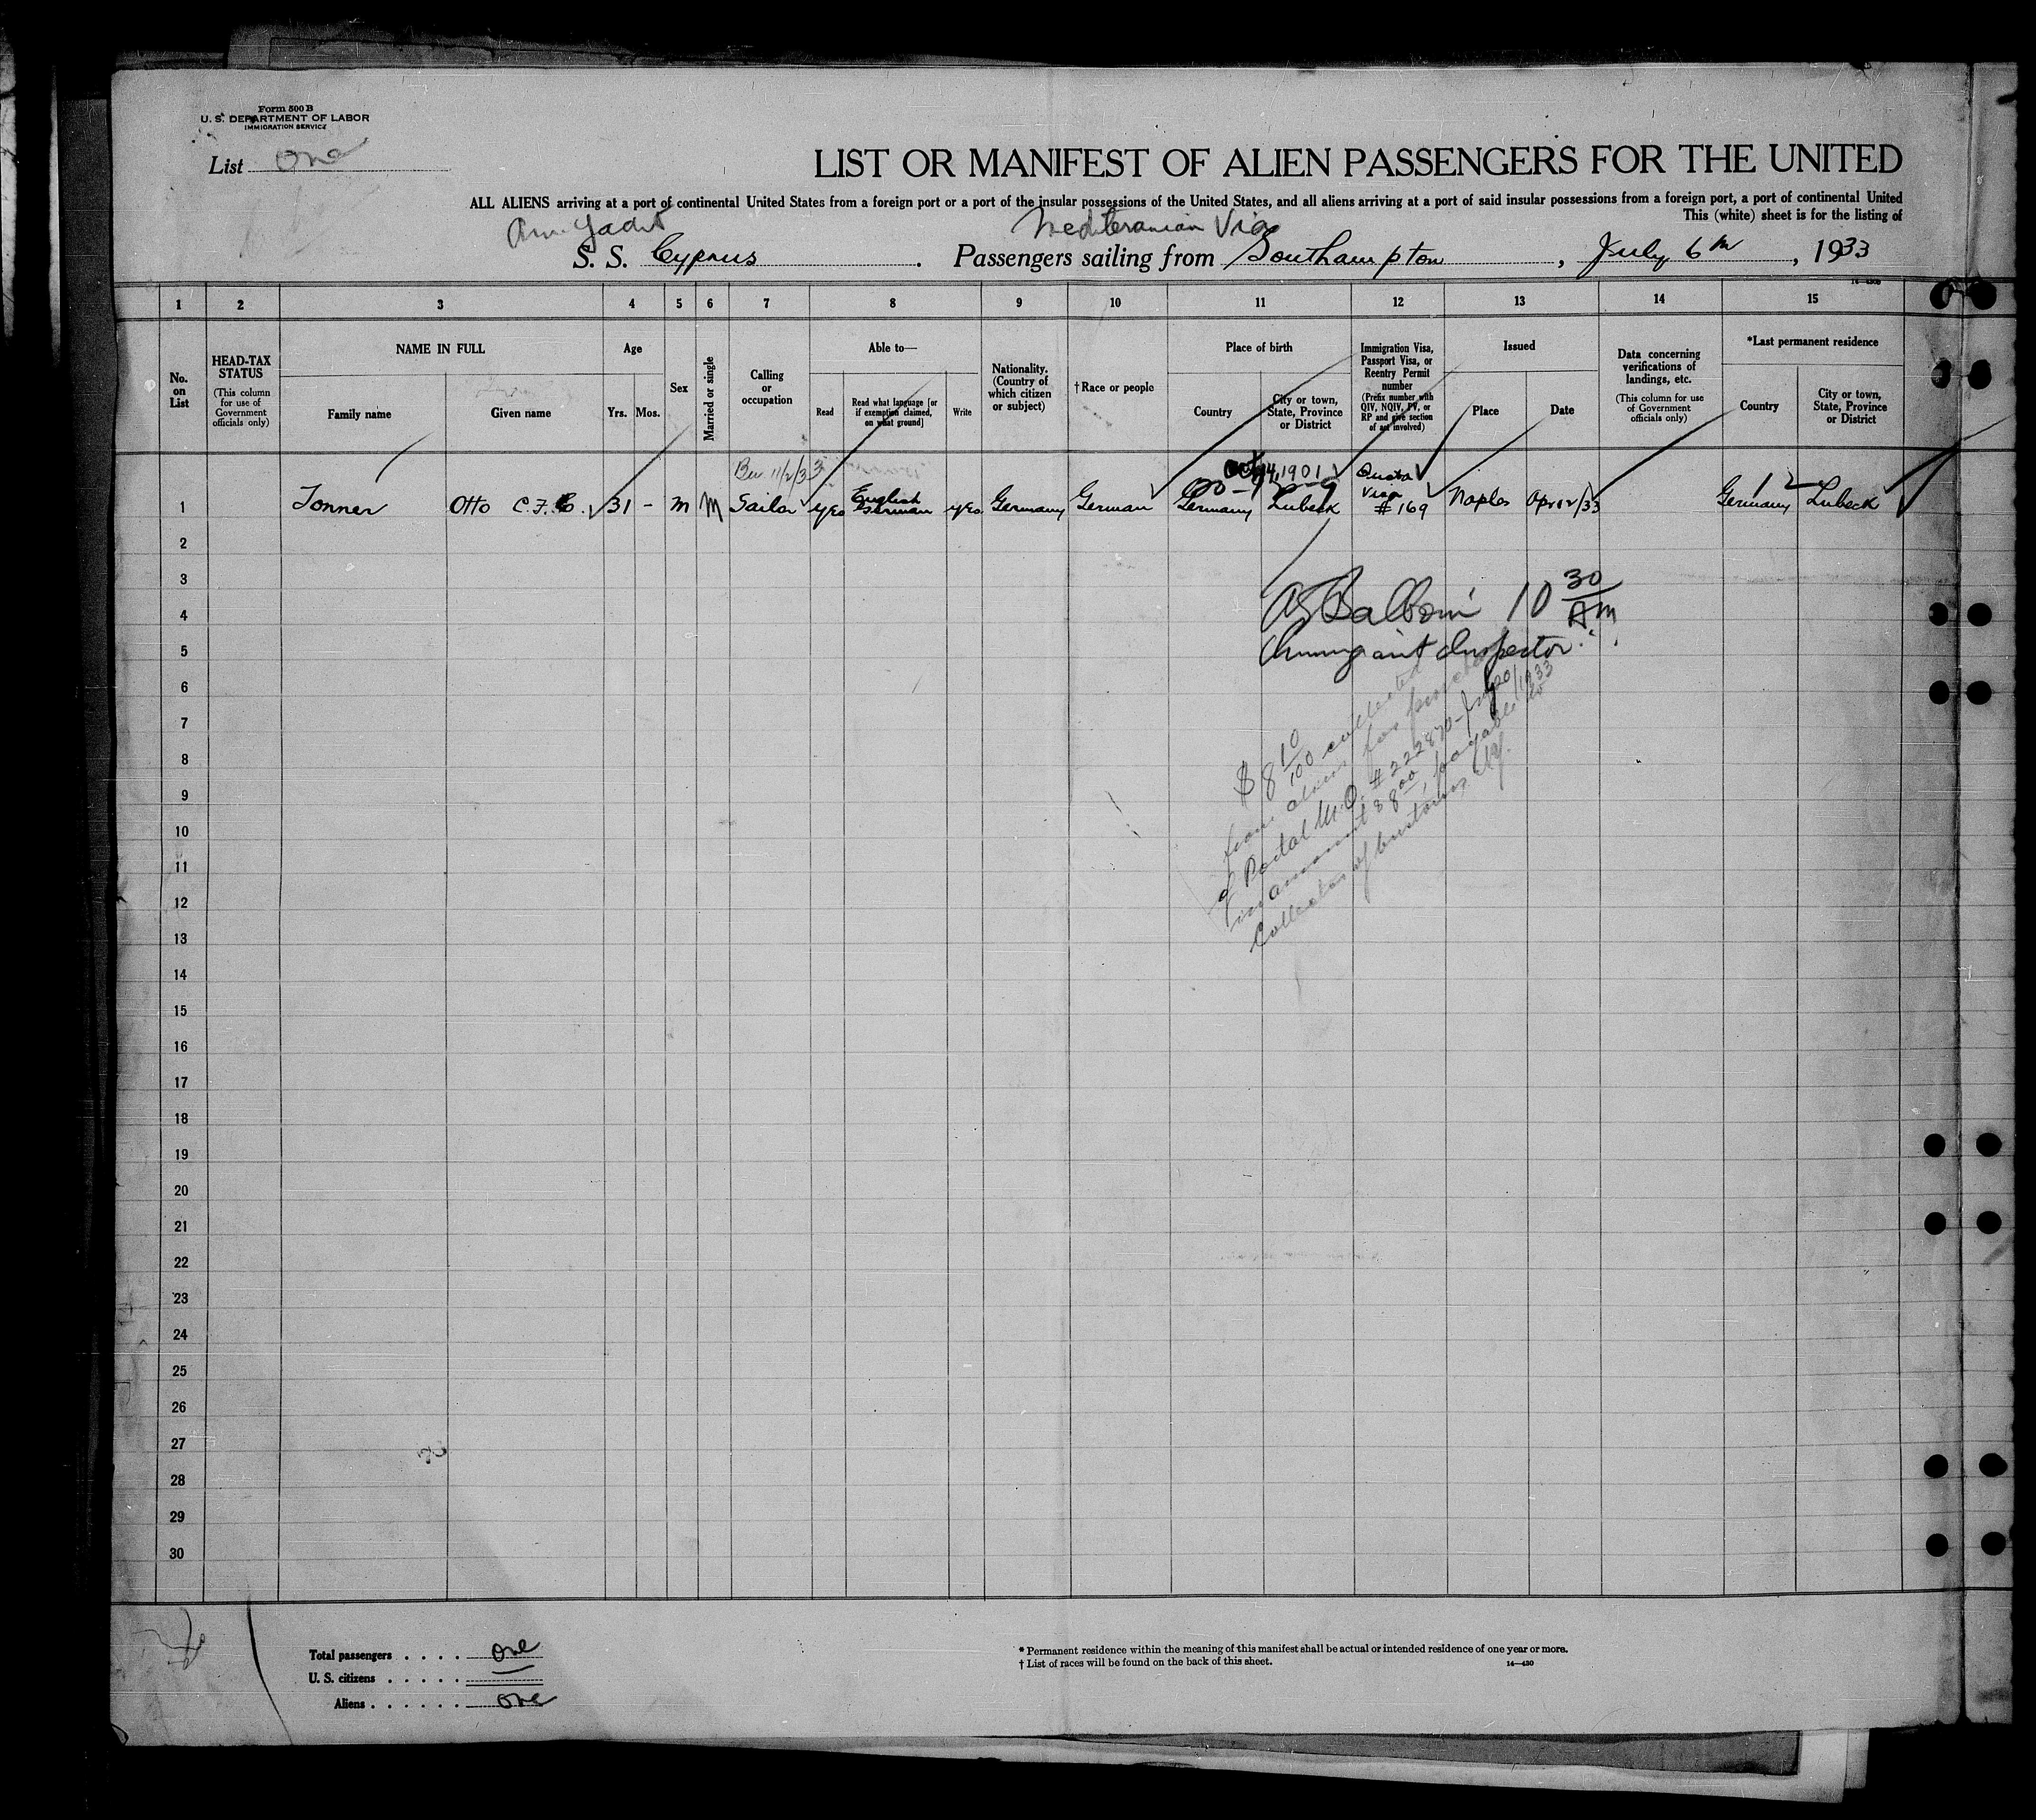 Form 500 B
U. S. DEPARTMENT OF LABOR
IMMIGRATION SERVICE
List One
LIST OR MANIFEST OF ALIEN PASSENGERS FOR THE UNITED
ALL ALIENS arriving at a port of continental United States from a foreign port or a port of the insular possessions of the United States, and all aliens arriving at a port of said insular possessions from a foreign port, a port of continental United
This (white) sheet is for the listing of
Am. Yacht Mediteranian Via
S. S. Cyprus . Passengers sailing from Southampton , July 6th , 1933
1 2 3 4 5 6 7 8 9 10 11 12 13 14 15
No. on List
HEAD-TAX STATUS
(This column for use of Government officials only)
NAME IN FULL
Family name Given name
Age
Yrs. Mos.
Sex
Married or single
Calling or occupation
Able to—
Read
Read what language [or if exemption claimed, on what ground]
Write
Nationality. (Country of which citizen or subject)
† Race or people
Place of birth
Country
City or town, State, Province or District
Immigration Visa, Passport Visa, or Reentry Permit number
(Prefix number with QIV, NQIV, PV, or RP and give section of act involved)
Issued
Place Date
Data concerning verifications of landings, etc.
(This column for use of Government officials only)
*Last permanent residence
Country
City or town, State, Province or District
11/2/33 Oct 14, 1901
1 Tonner Otto C. F. C. 31 - M M Sailor yes English German yes Germany German Germany Lubeck Visa # 169 Naples Apr 12/33 Germany Lubeck
12
2
3
4
5
6
7
8
9
10
11
12
13
14
15
16
17
18
19
20
21
22
23
24
25
26
27
28
29
30
10 30 AM
Immigrant Inspector.
$8 10/100 collected
from alien for purchase
of Postal M.O. #222870-July 20/1933
in amount $8.00, payable to
Collector of Customs, N.Y.
Total passengers . . . . one
U. S. citizens . . . . .
Aliens . . . . . . one
* Permanent residence within the meaning of this manifest shall be actual or intended residence of one year or more.
† List of races will be found on the back of this sheet.
14—430